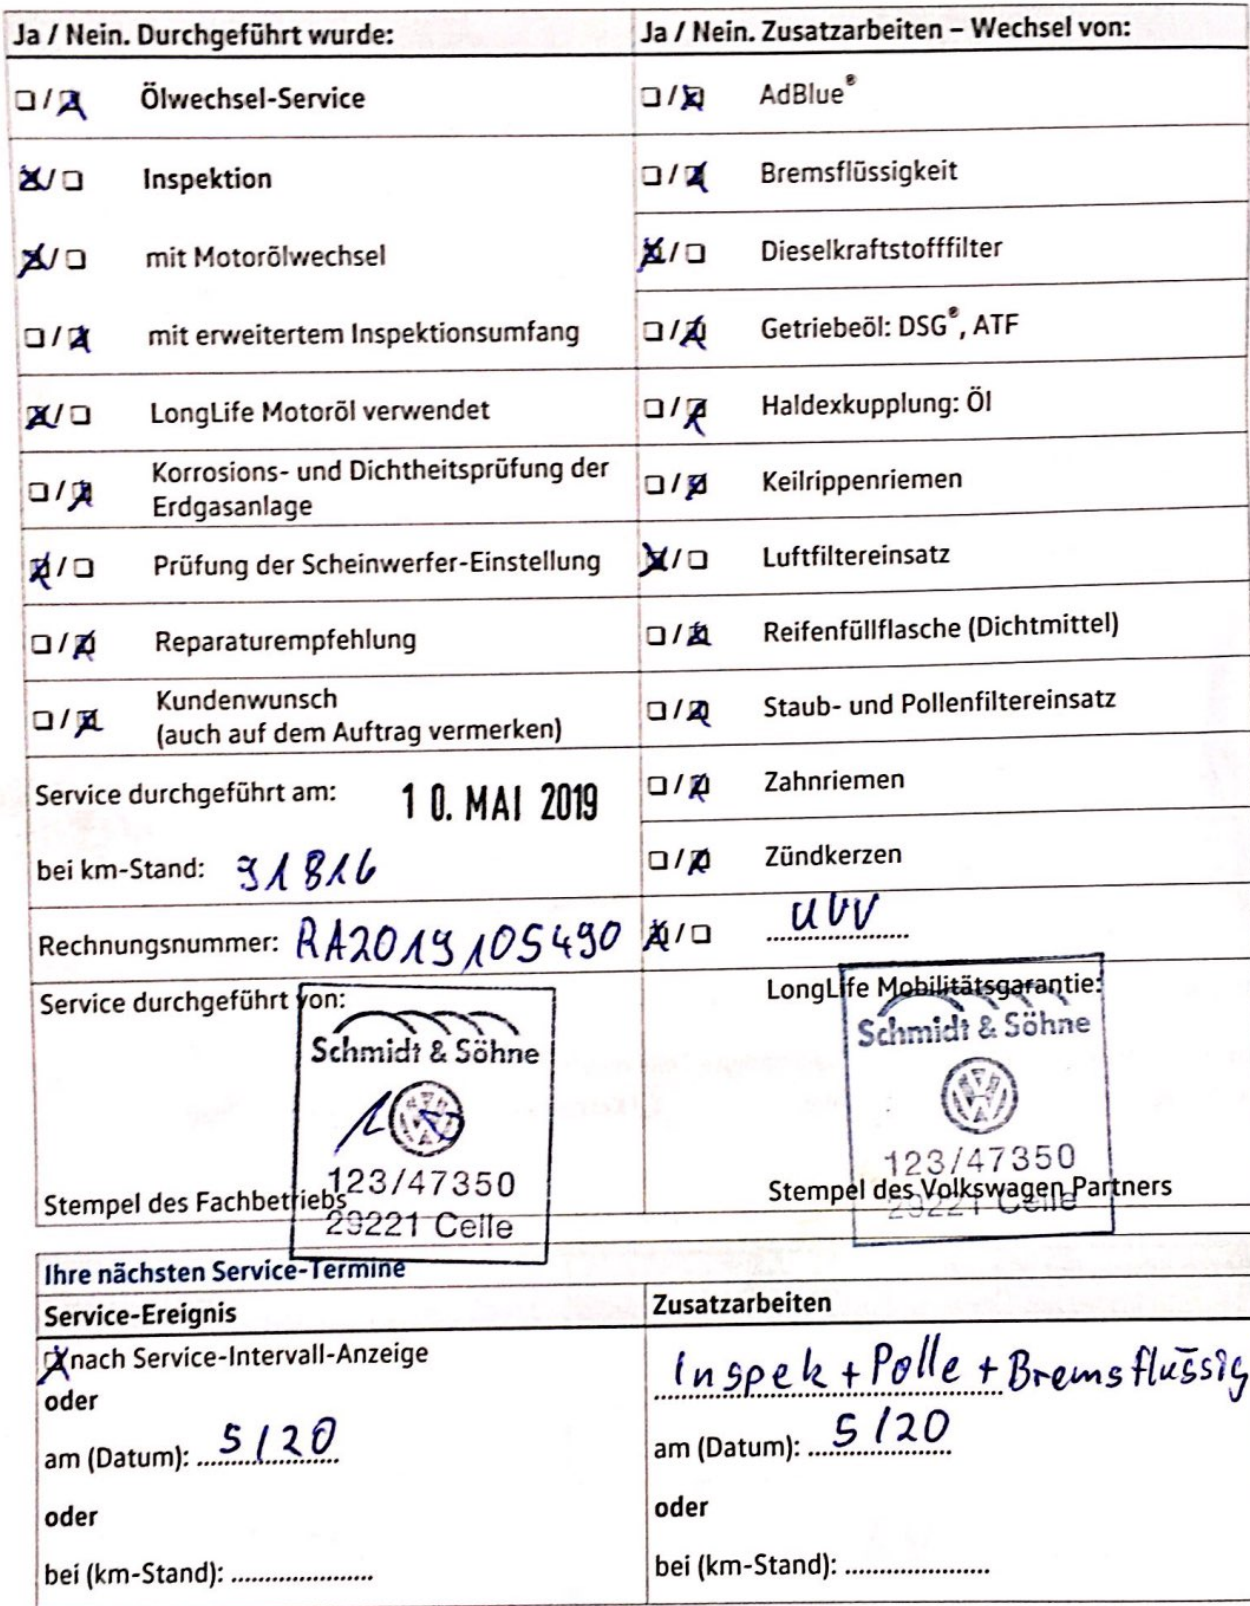 Ja / Nein. Durchgeführt wurde:
Ja / Nein. Zusatzarbeiten – Wechsel von:
/ Ölwechsel-Service
/ AdBlue®
/ Inspektion
/ Bremsflüssigkeit
/ mit Motorölwechsel
/ Dieselkraftstofffilter
/ mit erweitertem Inspektionsumfang
/ Getriebeöl: DSG®, ATF
/ LongLife Motoröl verwendet
/ Haldexkupplung: Öl
/ Korrosions- und Dichtheitsprüfung der
Erdgasanlage
/ Keilrippenriemen
/ Prüfung der Scheinwerfer-Einstellung
/ Luftfiltereinsatz
/ Reparaturempfehlung
/ Reifenfüllflasche (Dichtmittel)
/ Kundenwunsch
(auch auf dem Auftrag vermerken)
/ Staub- und Pollenfiltereinsatz
Service durchgeführt am: 10. MAI 2019
/ Zahnriemen
bei km-Stand: 91816
/ Zündkerzen
Rechnungsnummer: RA2019105490
/ UVV
Service durchgeführt von:
Schmidt & Söhne
VW
123/47350
29221 Celle
Stempel des Fachbetriebs
LongLife Mobilitätsgarantie:
Schmidt & Söhne
VW
123/47350
29221 Celle
Stempel des Volkswagen Partners
Ihre nächsten Service-Termine
Service-Ereignis
Zusatzarbeiten
nach Service-Intervall-Anzeige
Inspek + Polle + Bremsflüssig
oder
am (Datum): 5/20
am (Datum): 5/20
oder
oder
bei (km-Stand): ....................
bei (km-Stand): ....................